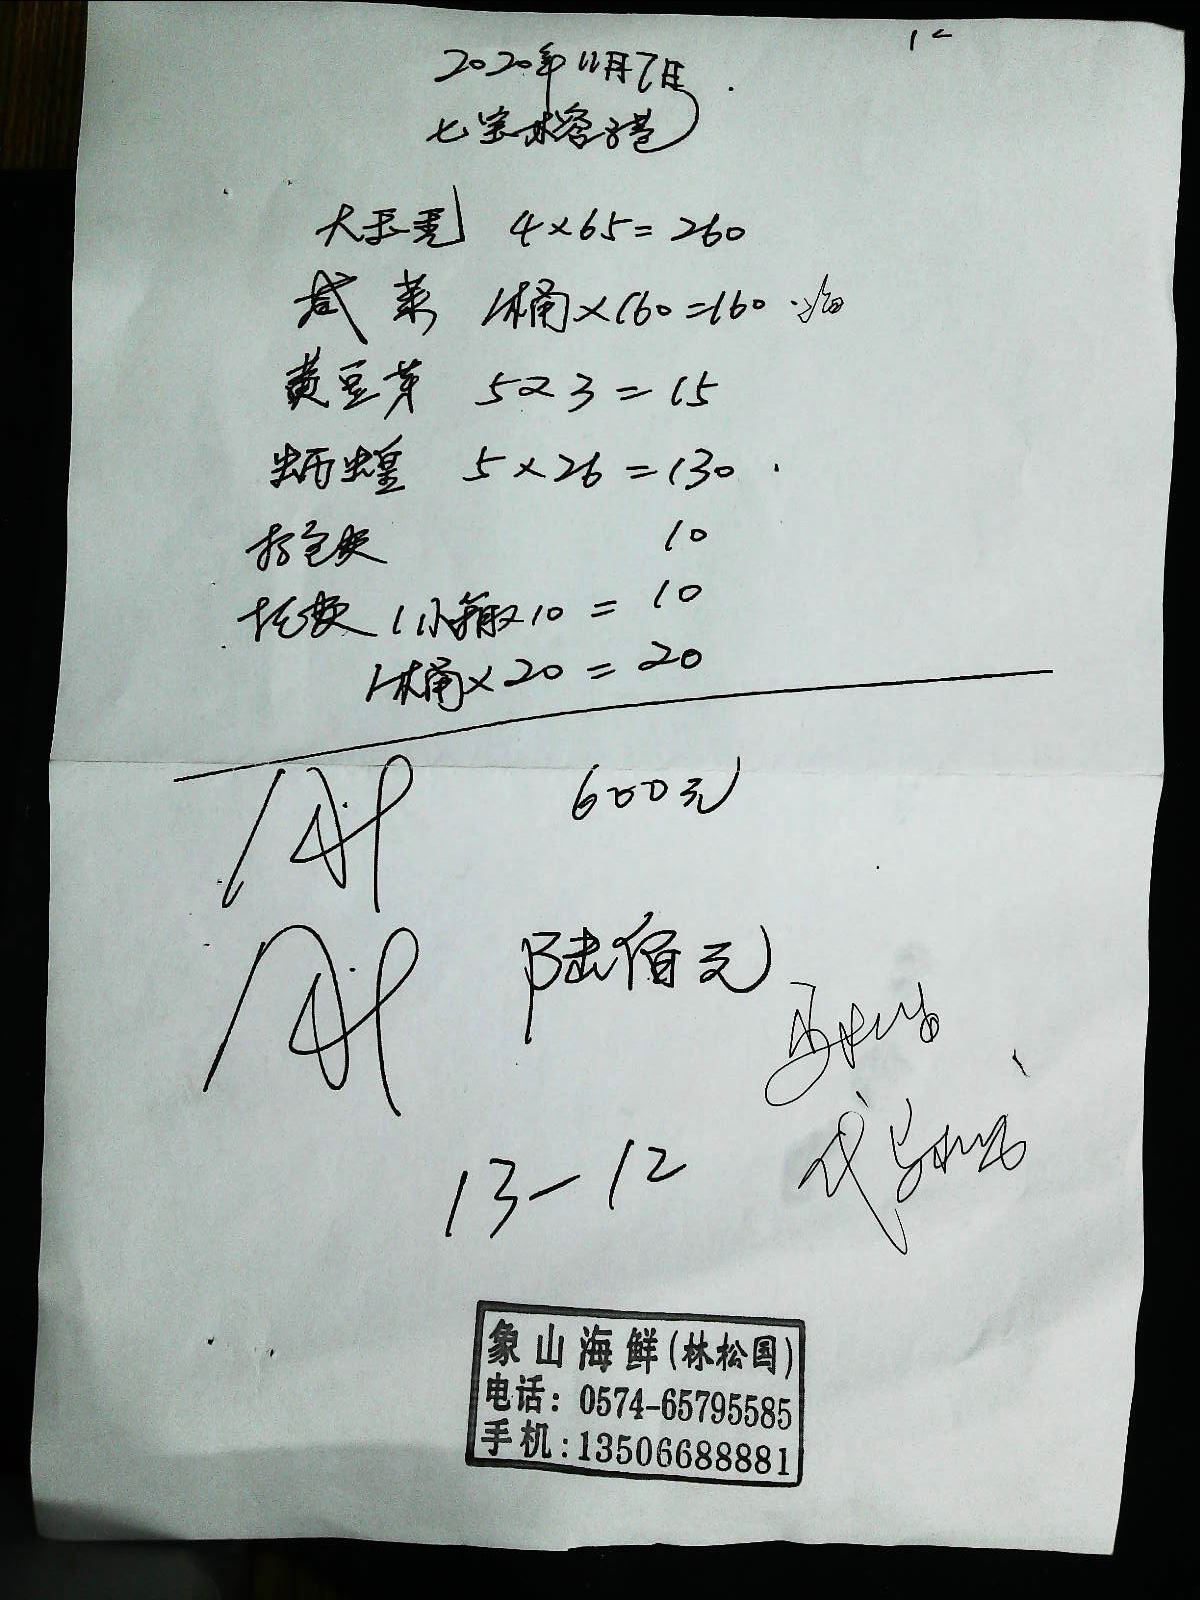 2020年11月7日
七宝
4×65=260
咸菜 1桶×160=160
黄豆芽 5×3=15
5×26=130
打包费 10
1小箱×10=10
1桶×20=20
600元
陆佰元
13-12
象山海鲜(林松国)
电话:0574-65795585
手机:13506688881